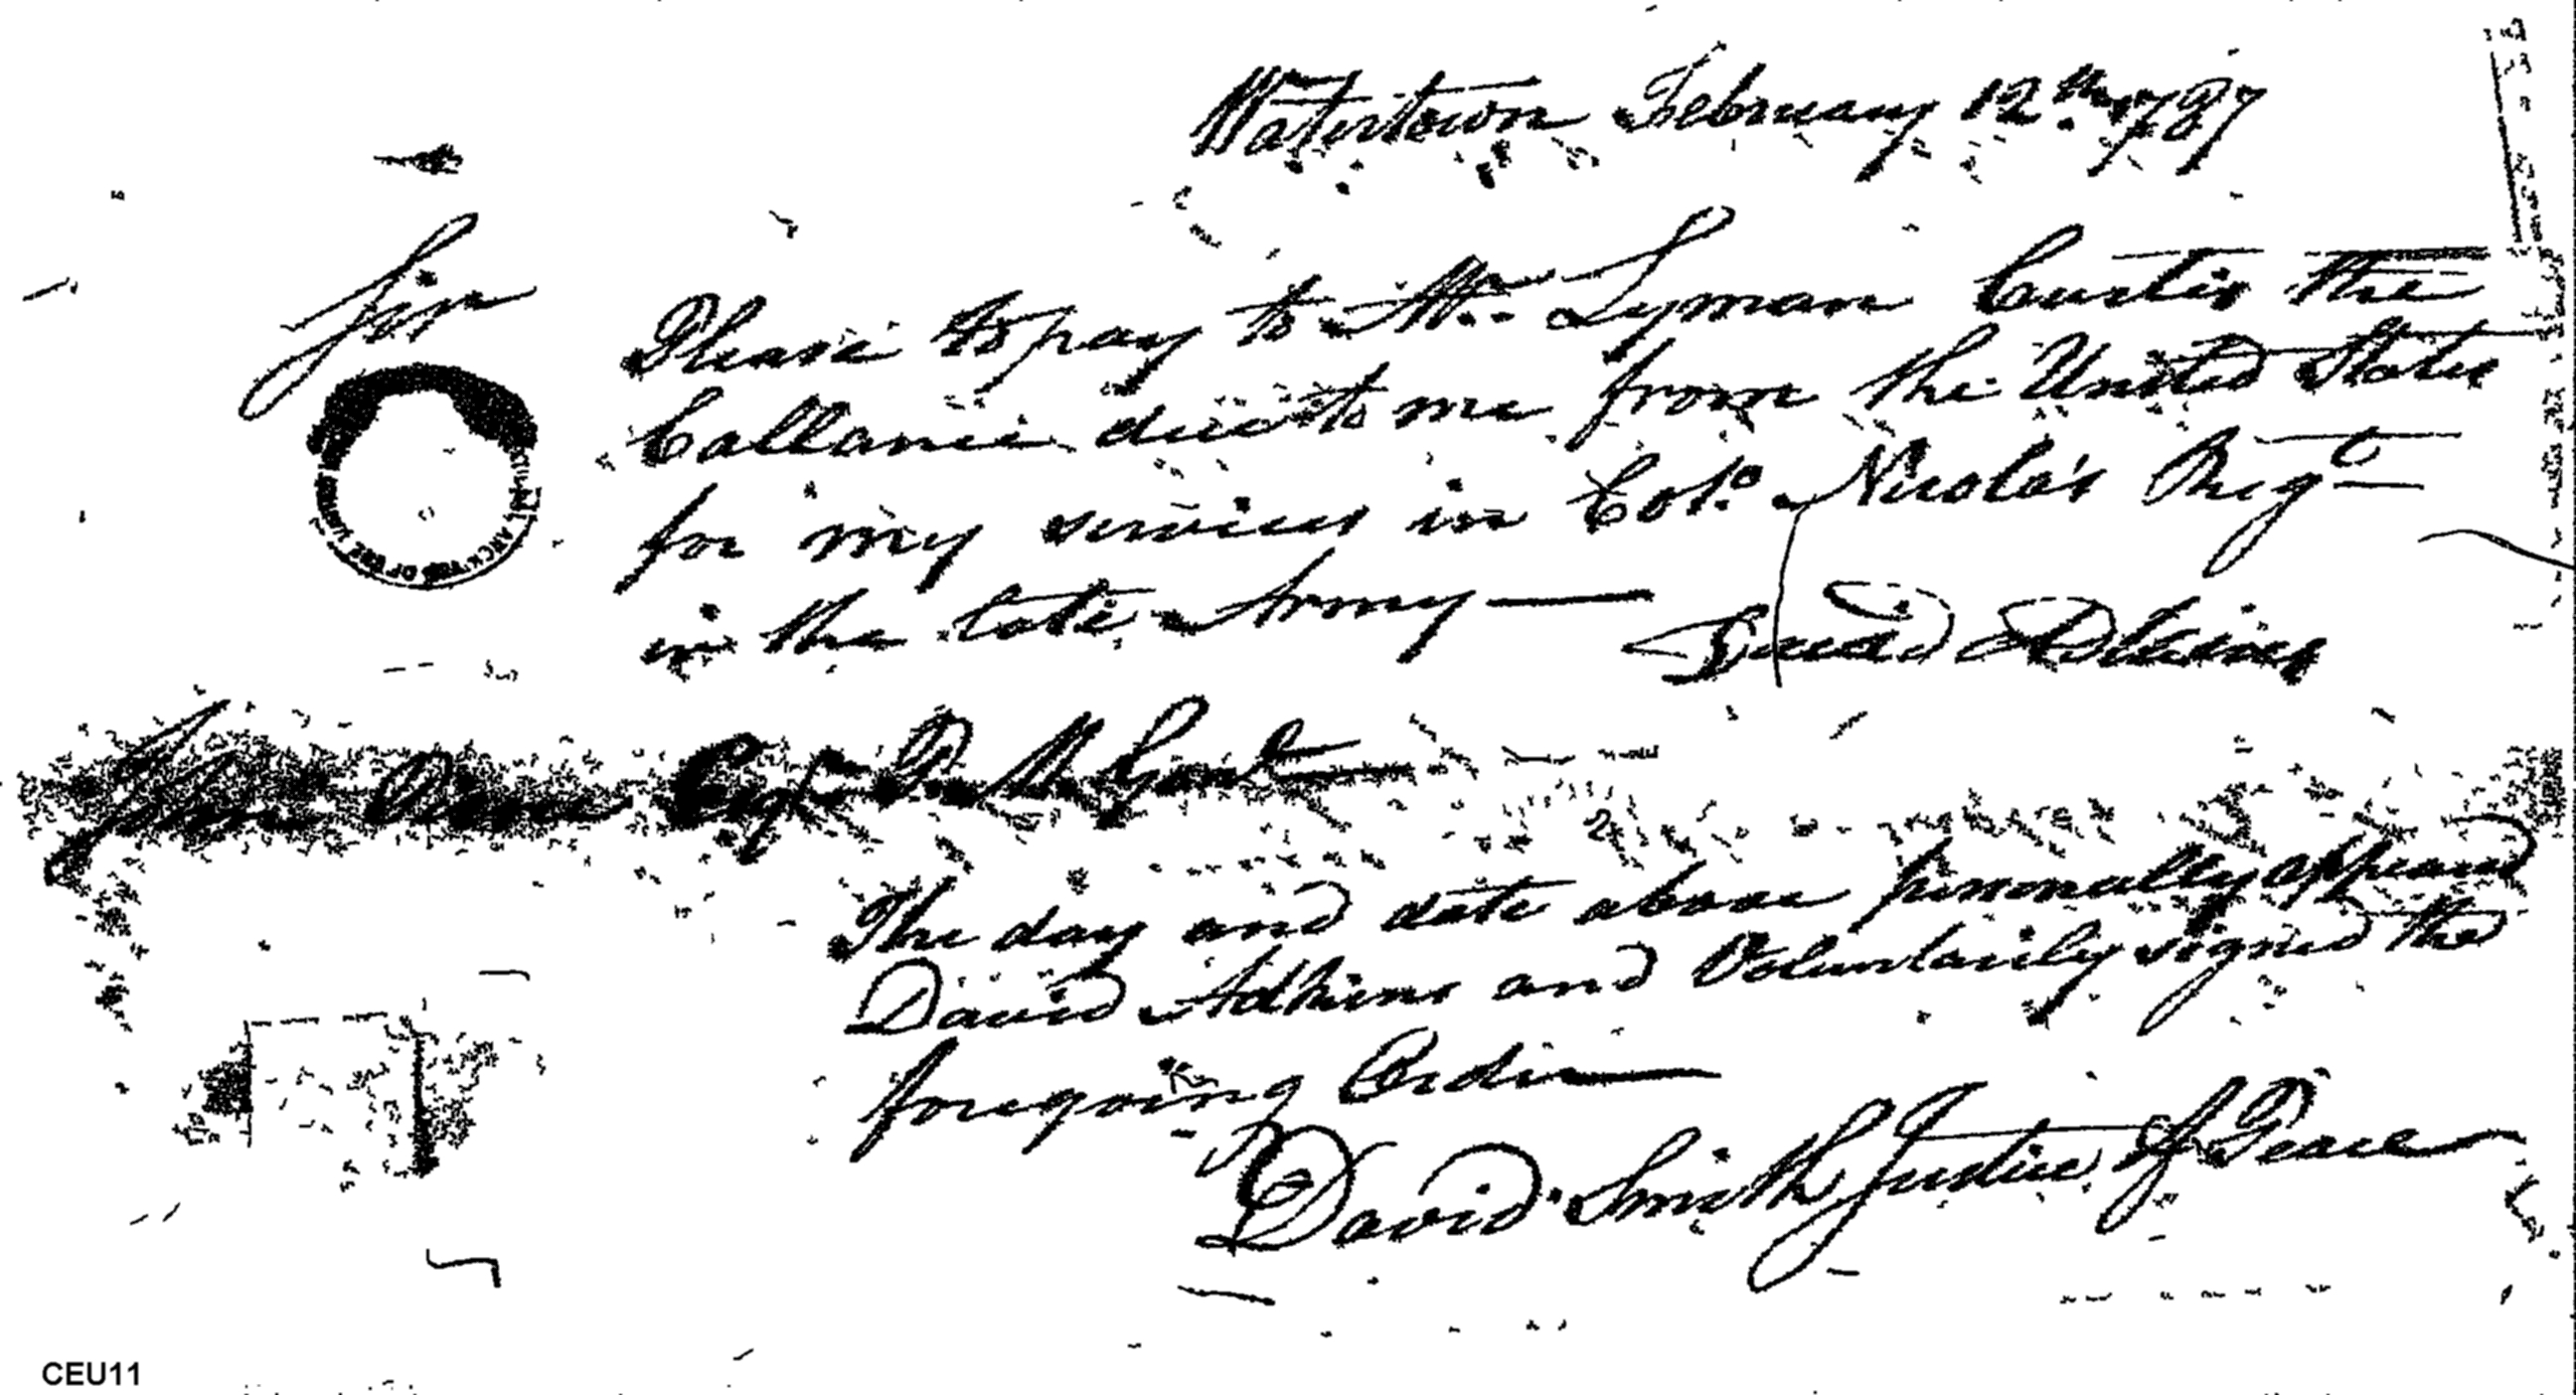 Watertown February 12th 1787
Sir
Please to pay to Mr. Lyman Curtis the
ballance due to me from the United States
for my services in Colo. Nicola's Regt
in the late Army—
David Adkins
Esqr P. M. Genl
The day and date above personally appeard
David Adkins and Voluntarily signed the
foregoing Order—
David Smith Justice of Peace
CEU11